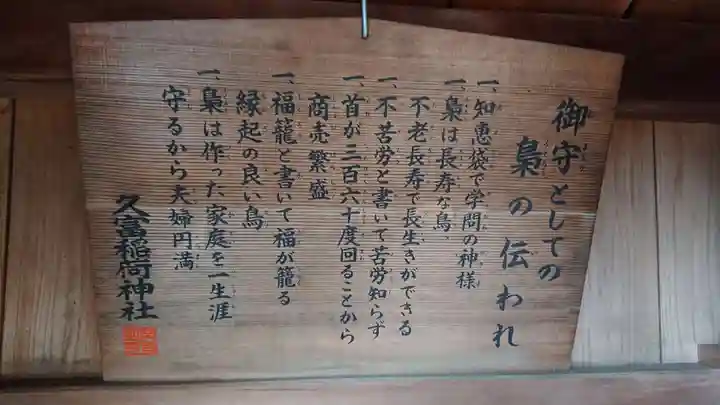 御守としての
梟の伝われ
一、知恵袋で学問の神様
一、梟は長寿な鳥、
不老長寿で長生きができる
一、不苦労と書いて苦労知らず
一、首が三百六十度回ることから
商売繁盛
一、福籠と書いて福が籠る
縁起の良い鳥
一、梟は作った家庭を一生涯
守るから夫婦円満
久富稲荷神社